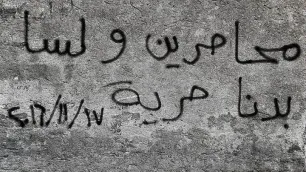 محاصرين ولسا
بدنا حرية
٢٠١٦/١١/١٧